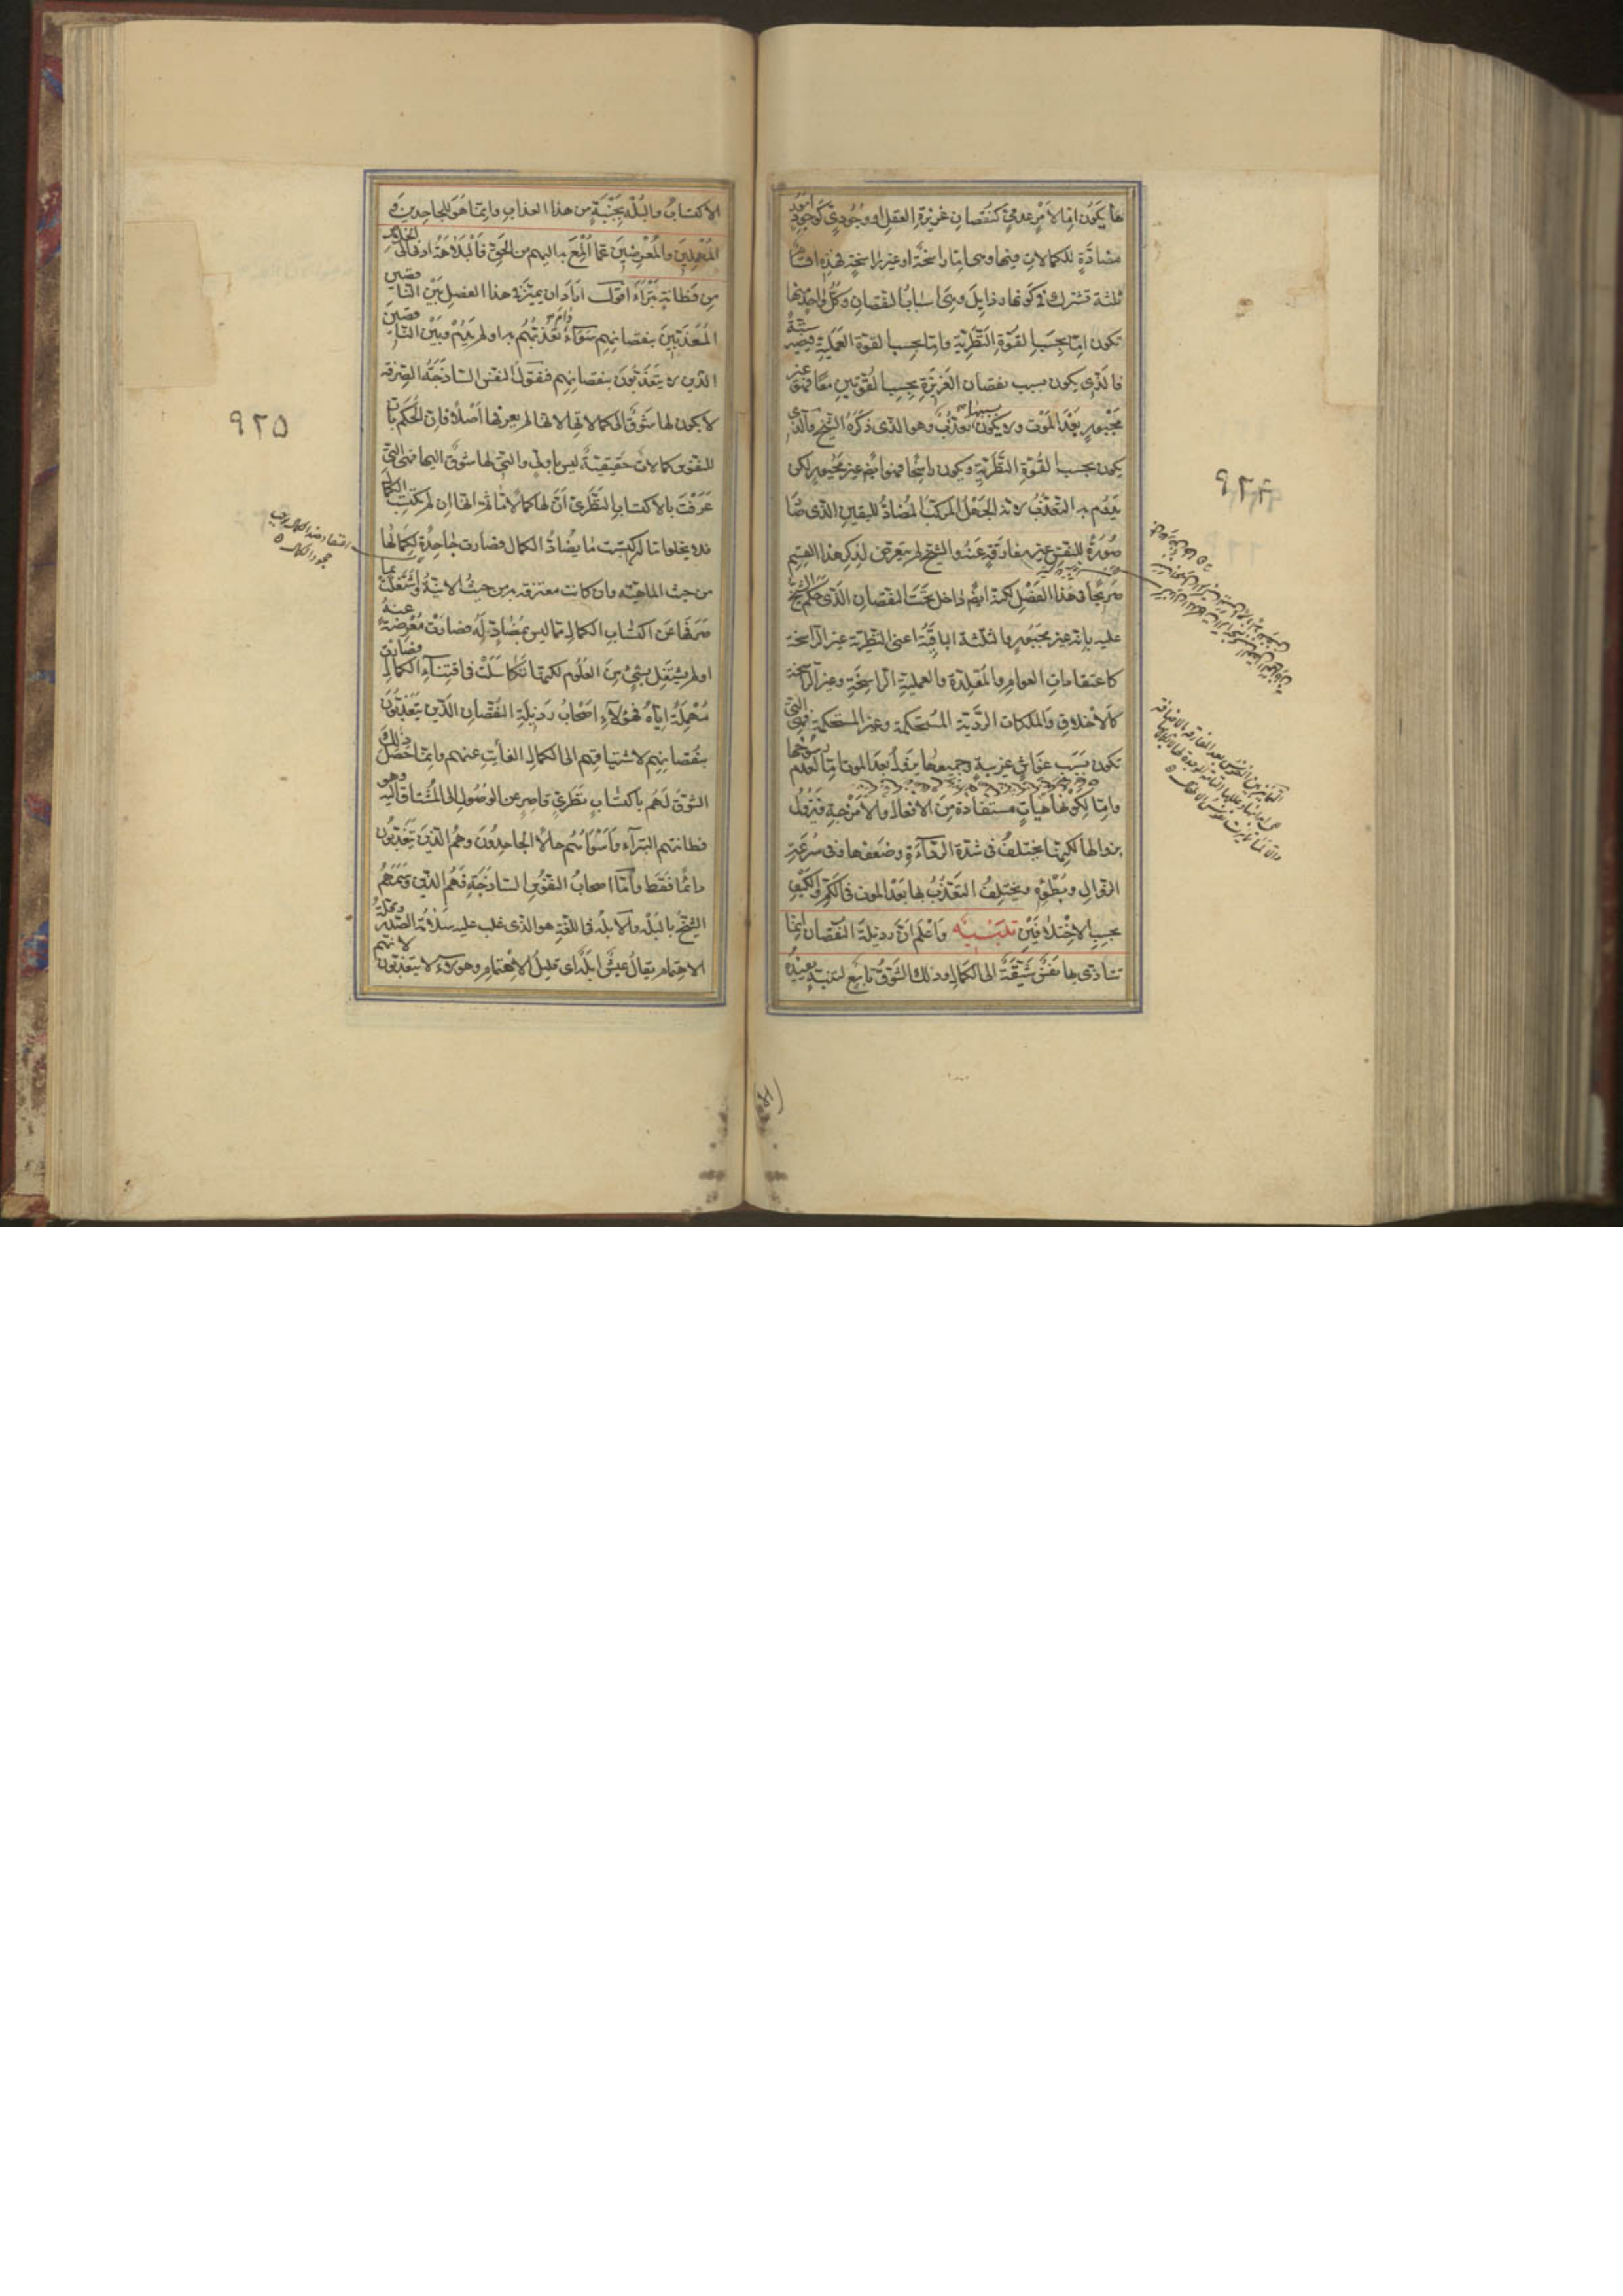 ها يكون امّا لامر عدمىّ كنقصان غريزة العقل او وجودىّ كوجود امور
مضادّة للكمالات فيها وهى امّا راسخة او غير راسخة فهذه اقسام
ثلثة تشترك فى كونها رذايل وهى اسباب النقصان وكل واحد منها
تكون امّا بحسب القوّة النّظريّة وامّا بحسب القوة العمليّة فيصير ستّة
فالّذى يكون بسبب نقصان الغريزة بحسب القوّتين معًا فهو غير
مجبور بعد الموت ولا يكون بسببها تعذّب وهو الذى ذكره الشيخ والّذى
يكون بحسب القوّة النّظريّة ويكون راسخًا فهو ايضم غير مجبور لكن
يدوم به التعذّب لانه الجهل المركّب المضادّ لليقين الذى صار
صورة للنفس غير مفارقة عنه والشيخ لم يتعرض لذكر هذا القسم
صريحًا فى هذا الفصل لكنه ايضم داخل تحت النقصان الذى حكم الشيخ
عليه بانه غير مجبور والثلثة الباقية اعنى النظريّة غير الراسخة
كاعتقادات العوام والمقلدة والعملية الراسخة وغير الراسخة
كالاخلاق والملكات الرديّة المستحكمة وغير المستحكمة فهى التى
تكون بسبب غواش غريبة وجميعها يزول بعد الموت امّا لعدم رسوخها
وامّا لكونها هيات مستفادة من الافعال والامزجة فتزول
بزوالها لكنها يختلف فى شدة الرداءة وضعفها وفى سرعة
الزوال وبطؤه ويختلف التعذّب بها بعد الموت فى الكم والكيف
بحسب الاختلافين تنبيه واعلم ان رذيلة النقصان انما
تتاذى بها نفس شيّقة الى الكمال وذلك الشوق تابع لتنبه يفيده
٩٢٤
الاكتساب والبله بجنبة من هذا العذاب وانما هو للجاحدين و
المهملين والمعرضين عما المع به اليهم من الحق فالبلاهة ادنى الى الخلاص
من فطانة بتراء اقول اراد ان يميز فى هذا الفصل بين الناقصين
المعذبين بنقصانهم سواء دام تعذبهم به او لم يدم وبين الناقصين
الذين لا يتعذبون بنقصانهم فنقول النفس الساذجة الصرفة
لا يكون لها شوق الى كمالاتها لانها لم يعرفها اصلًا فان الحكم بان
للنفوس كمالات حقيقية ليس باولى والتى لها شوق اليها فهى التى
عرفت بالاكتساب النظرى ان لها كمالا ما ثم انها ان لم تكتسب الكمال
فلا يخلو اما ان اكتسبت ما يضاد الكمال فصارت جاحدة لكمالها
من حيث الماهيّة وان كانت معترفة به من حيث الانيّة او اشتغلت بما
صرفها عن اكتساب الكمال مما ليس بمضاد له فصارت معرضة عنه
او لم يشتغل بشئ من العلوم لكنها تكاسلت فى اقتناء الكمال فصارت
مهملة اياه فهؤلاء اصحاب رذيلة النقصان الذين يتعذبون
بنقصانهم لاشتياقهم الى الكمال الفائت عنهم وانما حصل ذلك
الشوق لهم باكتساب نظرى قاصر عن الوصول الى المشتاق اليه وهو
فطانتهم البتراء واسوأهم حالا الجاحدون وهم الذين يتعذبون
دائمًا فقط وامّا اصحاب النفوس الساذجة فهم الذين وسمهم
الشيخ بالبله والابله فى اللغة هو الذى غلب عليه سلامة الصدر وقلة
الاهتمام يقال عيش ابله اى قليل الاهتمام وهؤلاء لا يتعذبون لانهم
٩٢٥